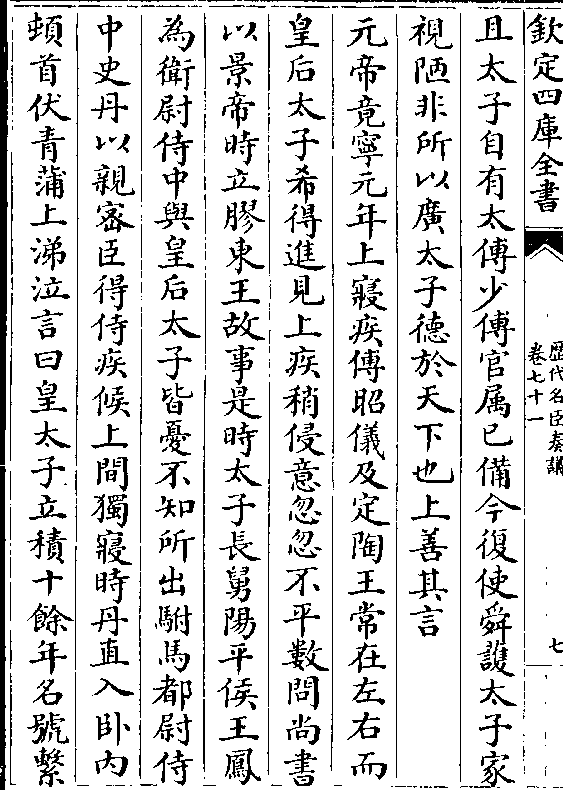 欽定四庫全書
歴代名臣奏議
卷七十一
七
且太子自有太傅少傅官属已備今復使舜護太子家
視陋非所以廣太子徳於天下也上善其言
元帝竟寧元年上寢疾傅昭儀及定陶王常在左右而
皇后太子希得進見上疾稍侵意忽忽不平數問尚書
以景帝時立膠東王故事是時太子長舅陽平侯王鳳
為衛尉侍中與皇后太子皆憂不知所出駙馬都尉侍
中史丹以親宻臣得侍疾候上間獨寢時丹直入卧内
頓首伏青蒲上涕泣言曰皇太子立積十餘年名號繫